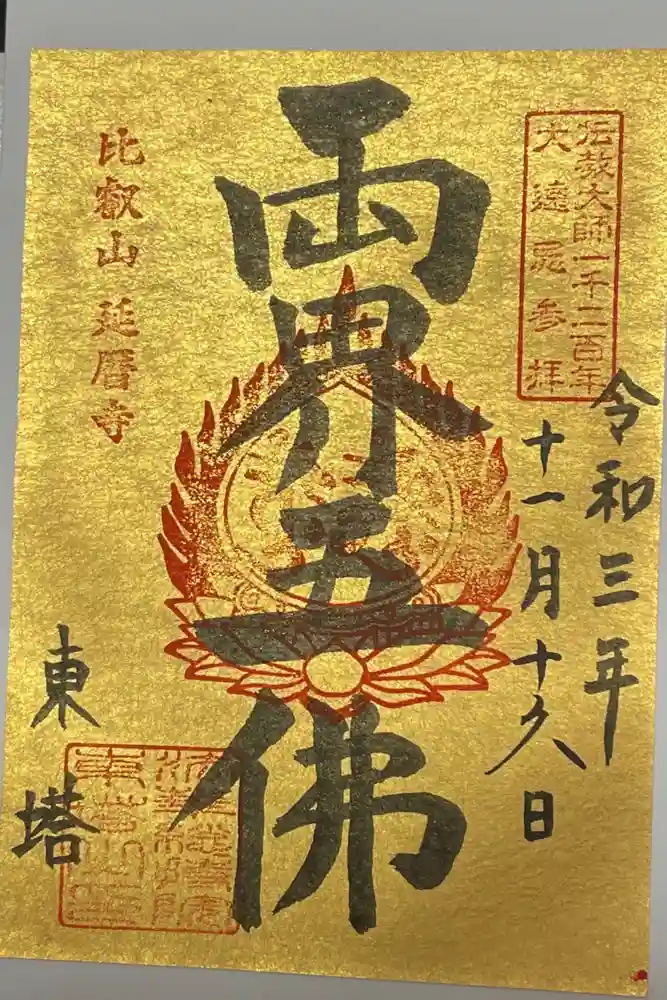 伝教大師一千二百年
大遠忌参拝
令和三年
十一月十九日
両界五佛
比叡山 延暦寺
東塔